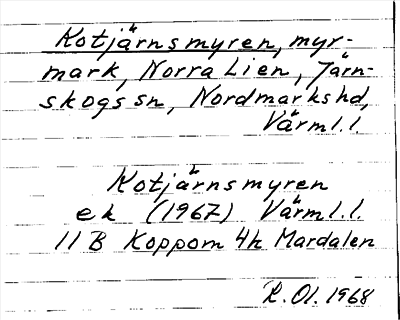 Kotjärnsmyren, myr-
mark, Norra Lien, Järn-
skogs sn, Nordmarks hd,
Värml.l.
Kotjärnsmyren
ek (1967) Värml.l.
11 B Koppom 4h Mardalen
R. Ol. 1968